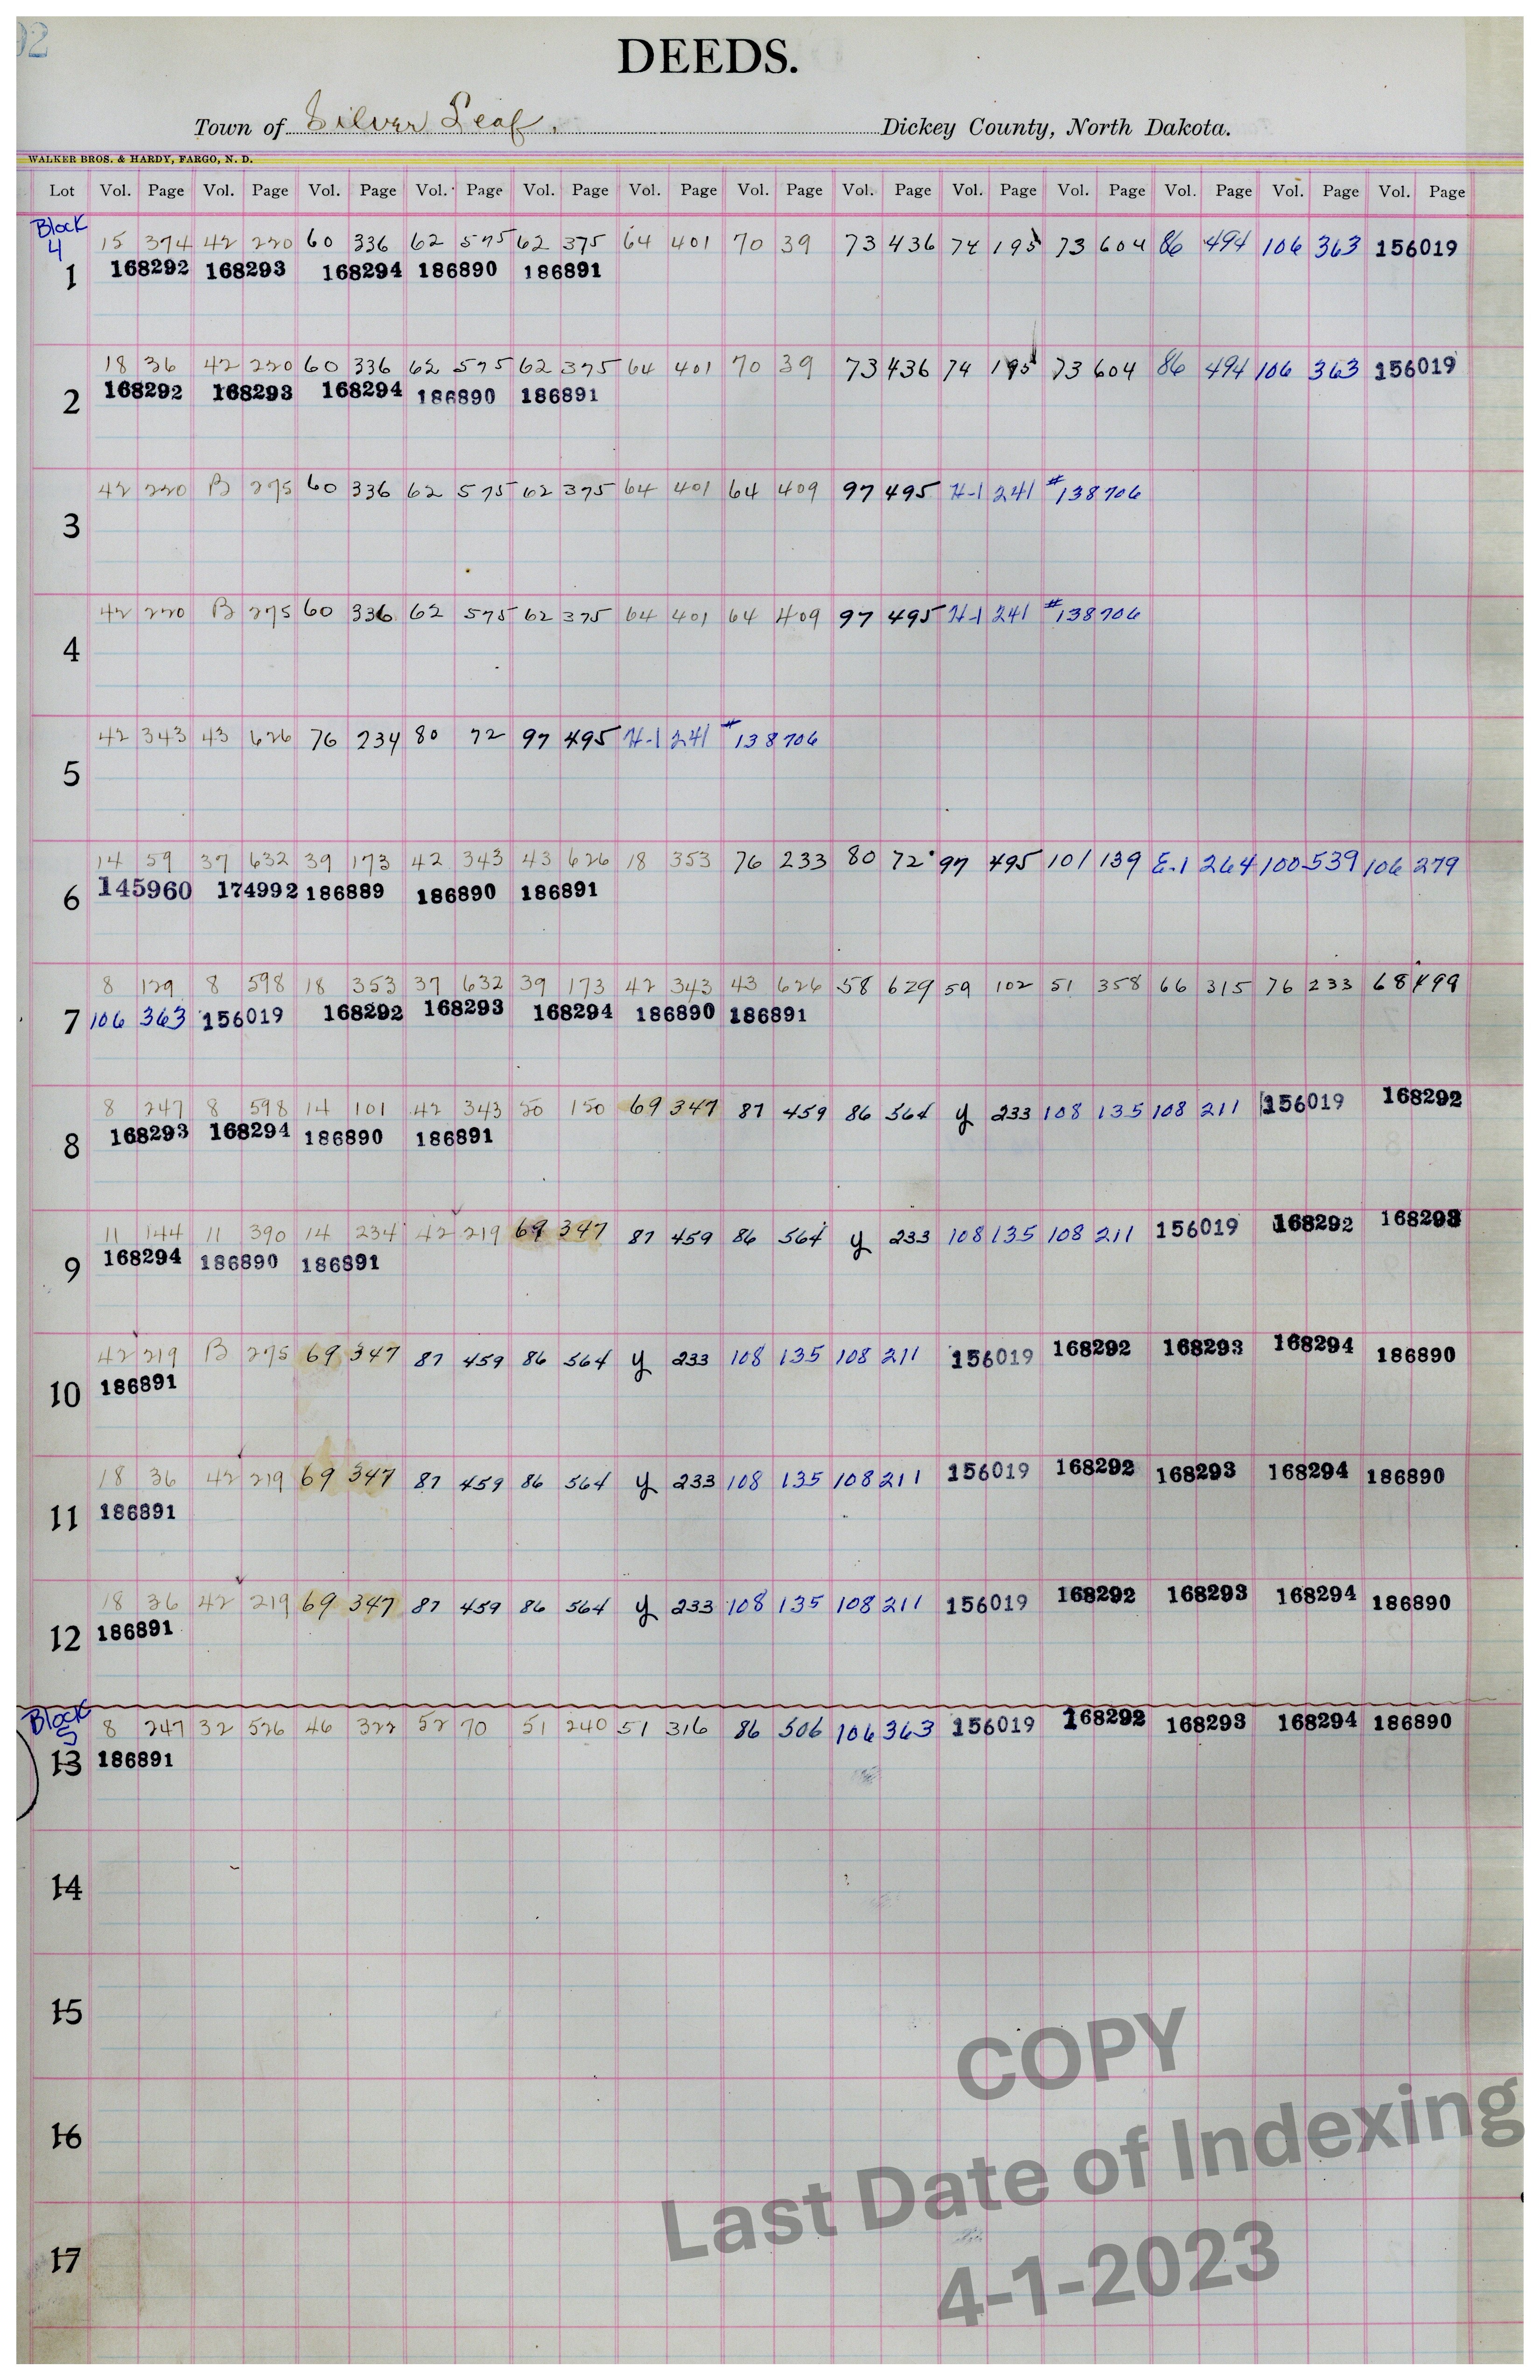 92
DEEDS.
Town of Silver Leaf. Dickey County, North Dakota.
WALKER BROS. & HARDY, FARGO, N. D.
Lot Vol. Page Vol. Page Vol. Page Vol. Page Vol. Page Vol. Page Vol. Page Vol. Page Vol. Page Vol. Page Vol. Page Vol. Page Vol. Page
Block
4 15 374 42 220 60 336 62 575 62 375 64 401 70 39 73 436 74 195 73 604 86 494 106 363 156019
1 168292 168293 168294 186890 186891
18 36 42 220 60 336 62 575 62 375 64 401 70 39 73 436 74 195 73 604 86 494 106 363 156019
2 168292 168293 168294 186890 186891
42 220 B 275 60 336 62 575 62 375 64 401 64 409 97 495 H-1 241 #138706
3
42 220 B 275 60 336 62 575 62 375 64 401 64 409 97 495 H-1 241 #138706
4
42 343 43 626 76 234 80 72 97 495 H-1 241 #138706
5
14 59 37 632 39 173 42 343 43 626 18 353 76 233 80 72 97 495 101 139 E-1 264 100 539 106 279
6 145960 174992 186889 186890 186891
8 129 8 598 18 353 37 632 39 173 42 343 43 626 58 629 59 102 51 358 66 315 76 233 68 499
7 106 363 156019 168292 168293 168294 186890 186891
8 247 8 598 14 101 42 343 50 150 69 347 87 459 86 564 y 233 108 135 108 211 156019 168292
8 168293 168294 186890 186891
11 144 11 390 14 234 42 219 69 347 87 459 86 564 y 233 108 135 108 211 156019 168292 168293
9 168294 186890 186891
42 219 B 275 69 347 87 459 86 564 y 233 108 135 108 211 156019 168292 168293 168294 186890
10 186891
18 36 42 219 69 347 87 459 86 564 y 233 108 135 108 211 156019 168292 168293 168294 186890
11 186891
18 36 42 219 69 347 87 459 86 564 y 233 108 135 108 211 156019 168292 168293 168294 186890
12 186891
Block
5 8 247 32 526 46 322 52 70 51 240 51 316 86 506 106 363 156019 168292 168293 168294 186890
13 186891
14
15
16
17
COPY
Last Date of Indexing
4-1-2023